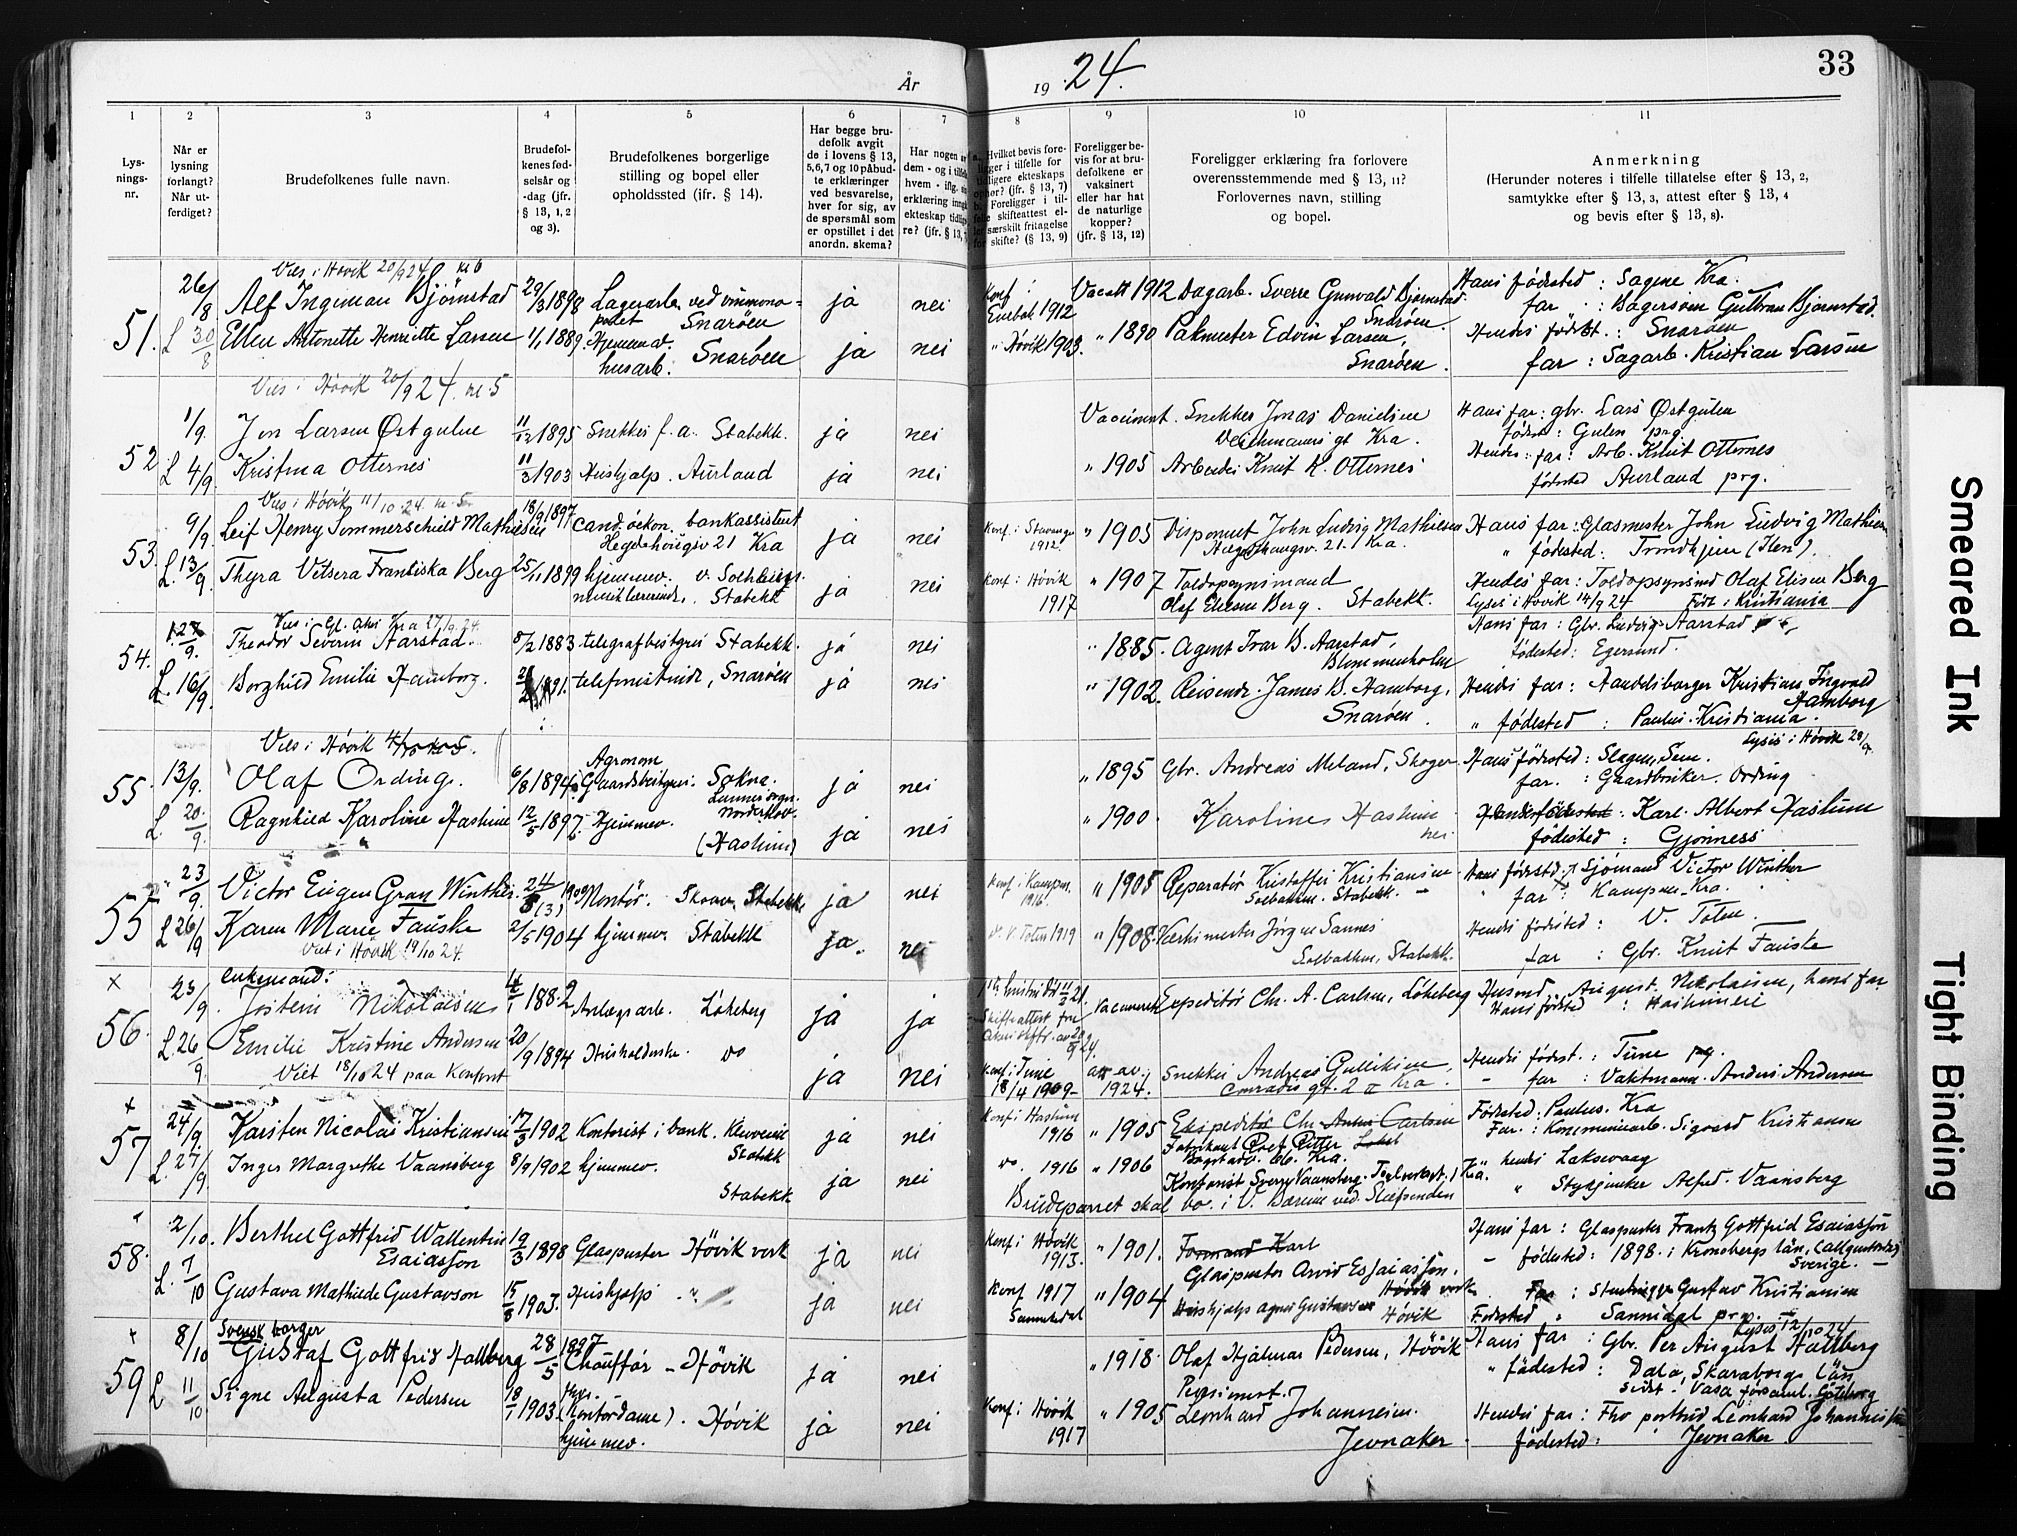 År
19 24.
33
1
2
3
4
5
6
7
8
9
10
11
Lys-
nings-
nr.
Når er
lysning
forlangt?
Når ut-
ferdiget?
Brudefolkenes fulle navn.
Brudefol-
kenes fød-
selsår og
-dag (jfr.
§ 13, 1, 2
og 3).
Brudefolkenes borgerlige
stilling og bopel eller
opholdssted (jfr. § 14).
Har begge bru-
defolk avgit
de i lovens § 13,
5,6,7 og 10 påbud-
te erklæringer
ved besvarelse,
hver for sig, av
de spørsmål som
er opstillet i det
anordn. skema?
Har nogen
dem - og i
hvem -
erklæring
ekteskap
re? (jfr. § 13,
Hvilket bevis fore-
ligger i tilfelle for
tidligere ekteskaps
ophør? (jfr. § 13, 7)
Foreligger i til-
felle skifteattest el-
ler særskilt fritagelse
for skifte? (§ 13, 9)
Foreligger be-
vis for at bru-
defolkene er
vaksinert
eller har hat
de naturlige
kopper?
(jfr. § 13, 12)
Foreligger erklæring fra forlovere
overensstemmende med § 13, 11?
Forlovernes navn, stilling
og bopel.
Anmerkning
(Herunder noteres i tilfelle tillatelse efter § 13, 2,
samtykke efter § 13, 3, attest efter § 13, 4
og bevis efter § 13, 8).
Vies i Høvik 20/9 24 nr 6
51. 26/8 Alf Ingiman Bjørnstad 29/3 1898 Lagerarb. ved ammonia- ja nei Konf i Vacatt 1912 Dagarb. Sverre Gunvald Bjørnstad. Hans fødested : Sagene Kra.
Snarøen Enebak 1912 Snarøen. far : Bagersvenn Gulbran Bjørnstad.
L 30/8 Ellen Antonette Henriette Larsen 1/1 1889 Hjemmev. Snarøen ja nei " Høvik 1903. " 1890 Pakmester Edvin Larsen, Hendes fødest. : Snarøen
husarb. Snarøen. far : Sagarb. Kristian Larsen
Vies i Høvik 20/9 24. nr 5
52 1/9. Jon Larsen Østgulen 11/12 1895 Snekker f. a. Stabekk. ja nei Vaccinert. Snekker Jonas Danielsen Hans far: gbr. Lars Østgulen
Deichmans gt Kra. fødest: Gulen prg
L 4/9 Kristina Otternes 11/3 1903 Hushjælp. Aurland ja nei " 1905 Arbeider Knut K. Otternes Hendes far: Arb. Knut Otternes
fødested Aurland prg.
Vies i Høvik 11/10 24. nr 5
53. 9/9. Leif Henry Sommerschield Mathiesen 18/9 1897 cand. oekon. bankassistent ja nei Konf. i Stavanger 1912. " 1905 Disponent John Ludvig Mathiesen Hans far: Glasmester John Ludvig Mathiesen
Hegdehaugsv 21 Kra Hegdehaugsv. 21. Kra. " fødested: Trondhjem (Ilen).
L. 13/9 Thyra Vetsera Franciska Berg 25/11 1899 hjemmev. ja nei Konf: i Høvik 1917 " 1907 Toldopsynsmand Hendes far: Toldopsynsmd Olaf Elisen Berg
musiklærerinde. Stabekk Olaf Elisen Berg. Stabekk. Lyses i Høvik 14/9 24 Født i Kristiania
Vies i Gl. Aker Kra 27/9. 24.
54. 12/9. Theodor Severin Aarstad. 8/2 1883 telegrafbestyrer Stabekk. ja nei " 1885. Agent Ivar B. Aarstad, Hans far: Gbr. Ludvig Aarstad
Blommenholm fødested: Egersund.
L. 16/9. Borghild Emilie Hamborg. 1891. telefonistinde, Snarøen ja nei " 1902. Reisende James B. Hamborg, Hendes far: Handelsborger Kristian Ingvald
Snarøen. Hamborg
" fødested : Paulus. Kristiania.
Vies i Høvik 4/10 nr 5. Lyses i Høvik 28/9.
55. 13/9. Olaf Ording. 6/8 1894. Agronom Gaardsbestyrer. Sokna. ja nei " 1895 Gbr. Andreas Meland, Skoger Hans fødested: Slagen, Sem.
Lunner sogn. Norderhov. far. : Gaardbruker. Ording
L. 20/9. Ragnhild Karoline Haslum 12/5 1897. Hjemmev. (Haslum) ja nei " 1900. Karoline Haslum Hendes far : Karl Albert Haslum
fødested : Gjønnes
55 b 23/9. Victor Eugen Gran Winther 24/3 1900 Montør. Stabekk ja nei Konf. i Kampen 1916. " 1905 Reparatør Kristoffer Kristiansen Hans fødested: Sjømand Victor Winther
Solbakken. Stabekk. far: Kampen. Kra.
L 26/9 Karen Marie Fauske 2/5 1904 hjemmev. Stabekk ja. nei V. Toten 1919 " 1908. Værksmester Jørgen Sannes Hendes fødested : V. Toten.
Viet i Høvik 19/10 24. Solbakken, Stabekk. far : Gbr. Knut Fauske
x enkemand:
56. 23/9. Jostein Nikolaisen 1882 Anlægsarb. Løkeberg ja ja Vaccineret Expeditør Chr. A. Carlsen, Løkeberg Husmd. August. Nikolaisen, hans far
Skifteattest fra Aker Hans fødested : Haslum
L. 26/9. Emilie Kristine Andersen 20/9 1894 Husholderske. do ja nei Konf. i Tune 18/4 1909 att. av. 1924. Snekker Andreas Gulliksen, Hendes fødest. : Tune prg.
Viet 18/10 24 paa Kontoret Conradis gt. 2 Kra. far : Vaktmann. Anders Andersen
x
57 24/9. Karsten Nicolai Kristiansen 17/3 1902 Kontorist i bank. Stabekk ja nei Konf. i Haslum 1916 " 1905 Ekspeditør Chr. Anker Carlsen Fødested: Paulus. Kra
Fabrikant Olaf Ritter Far. : Kommunearb. Sigvard Kristiansen
Bogstadv. 66. Kra.
L. 27/9. Inger Margrethe Vaansberg 8/9 1902 hjemmev. Stabekk ja nei do. 1916 " 1906 Kontorist Sverre Vaansberg. Kra. hendes Laksevaag
" Stykjunker Alfred. Vaansberg
Brudeparret skal bo i V. Bærum ved Slæpenden
58. 2/10. Berthel Gottfrid Wallentin 19/3 1898 Glaspuster Høvik verk ja nei Konf i Høvik 1913. " 1901. Formand Karl Hans far : Glaspuster Frantz Gottfrid Esaiasson
Esaiasson Glaspuster Arvid Esaiasson. Høvik verk fødested: 1898. i Kronobergs län, Sverige.
L. 7/10 Gustava Mathilde Gustavson 15/8 1903. Hushjælp " ja nei Konf. 1917 Sannidal " 1904 Hushjælp Agnes Gustavsen Høvik Far : Gustav Kristiansen
Fødested " Sannidal prg.
x Svensk borger Lyses 12/10 24
59 8/10 Gustaf Gottfrid Hallberg 28/5 1897 Chauffør - Høvik ja nei " 1918. Olaf Hjalmar Pedersen, Høvik Hans far : Gbr. Per August Hallberg
" fødested : Dala, Skaraborgs Län
sidst. Vasa församl. Göteborg
L 11/10 Signe Augusta Pedersen 18/1 1903. (Kontordame). Høvik ja nei Konf: i Høvik 1917 " 1905 Pensionist. Leonhard Johannesen. Hendes far : Leonhard Johannesen
hjemmev. Jevnaker. fødested: Jevnaker
Smeared Ink
Tight Binding